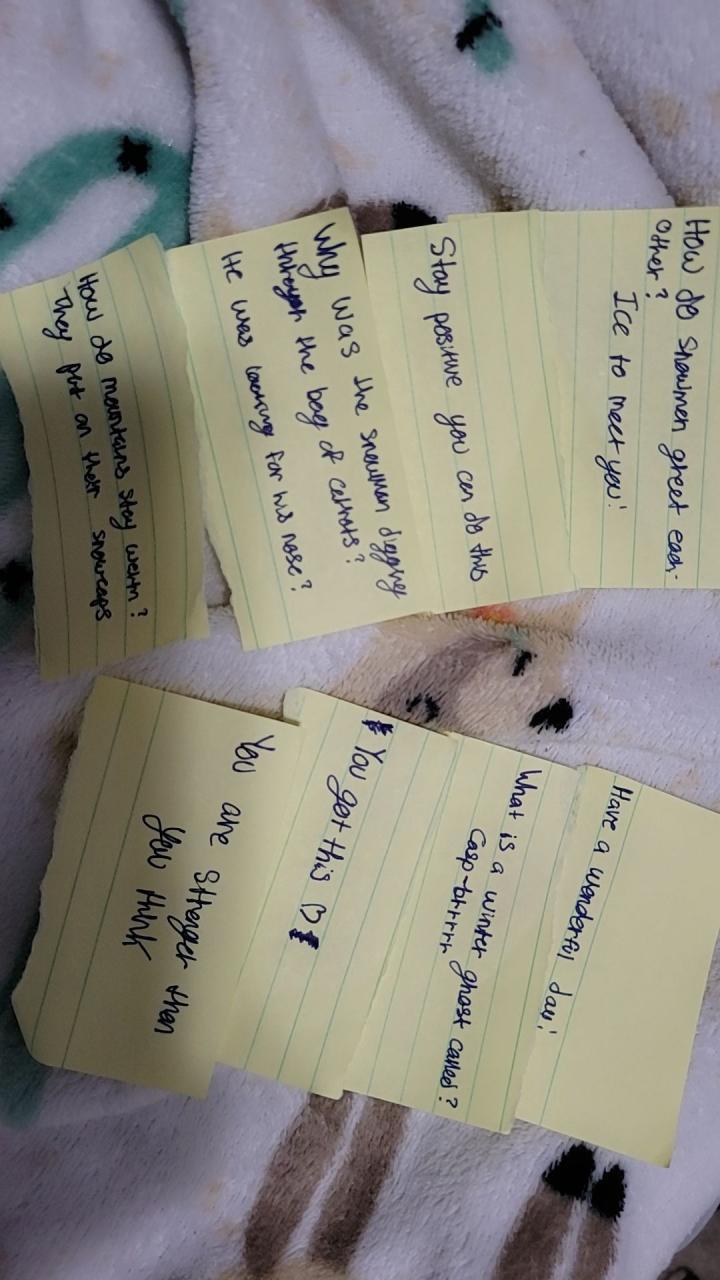 How do snowmen greet each-
other?
Ice to meet you!
Stay positive you can do this
Why was the snowman digging
through the bag of carrots?
He was looking for his nose?
How do mountains stay warm?
They put on their snowcaps
Have a wonderful day!
What is a winter ghost called?
Casp-brrrrr
You got this
You are stronger than
you think